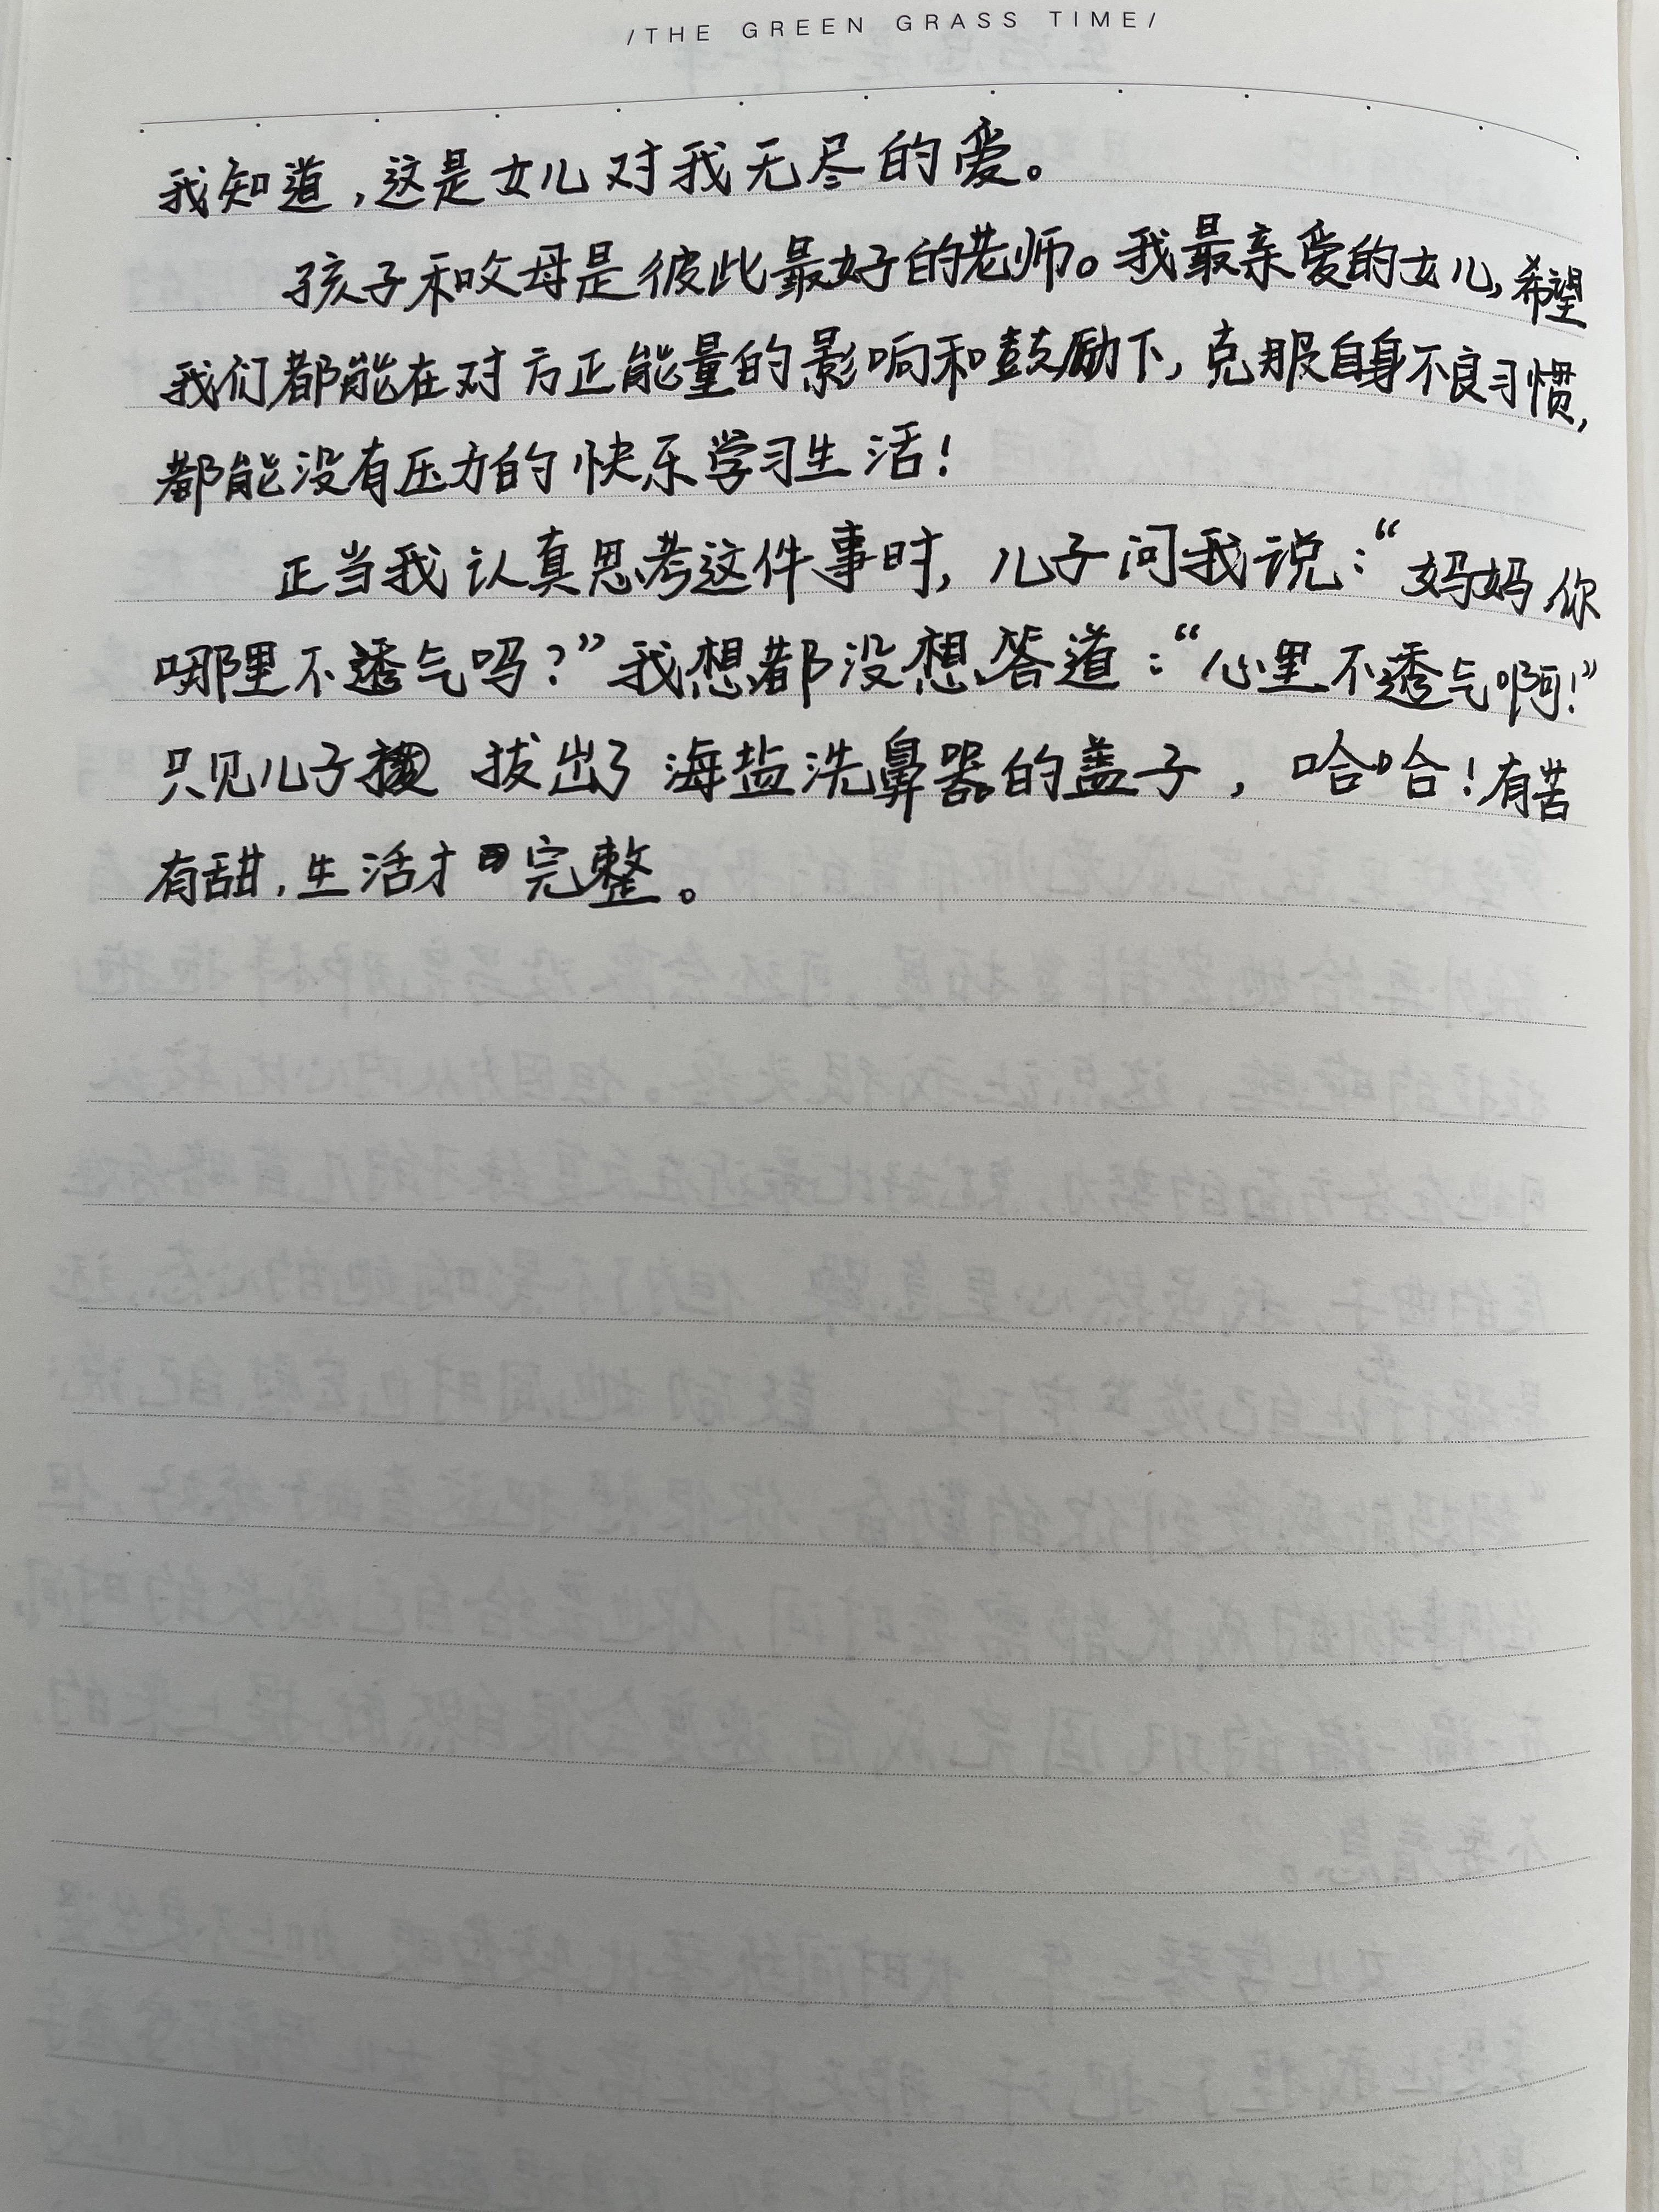 /THE GREEN GRASS TIME/
我知道,这是女儿对我无尽的爱。
孩子和父母是彼此最好的老师。我最亲爱的女儿,希望
我们都能在对方正能量的影响和鼓励下,克服自身不良习惯,
都能没有压力的快乐学习生活!
正当我认真思考这件事时,儿子问我说:“妈妈你
哪里不透气吗?”我想都没想答道:“心里不透气啊!”
只见儿子拔出了海盐洗鼻器的盖子,哈哈!有苦
有甜,生活才完整。